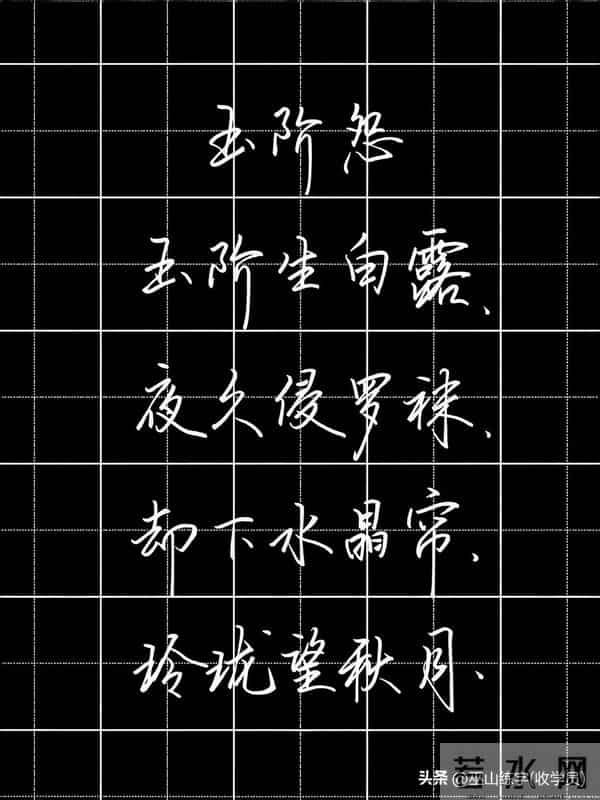 玉阶怨
玉阶生白露、
夜久侵罗袜、
却下水晶帘、
玲珑望秋月、
头条 @巫山练字(收学员)
若水网